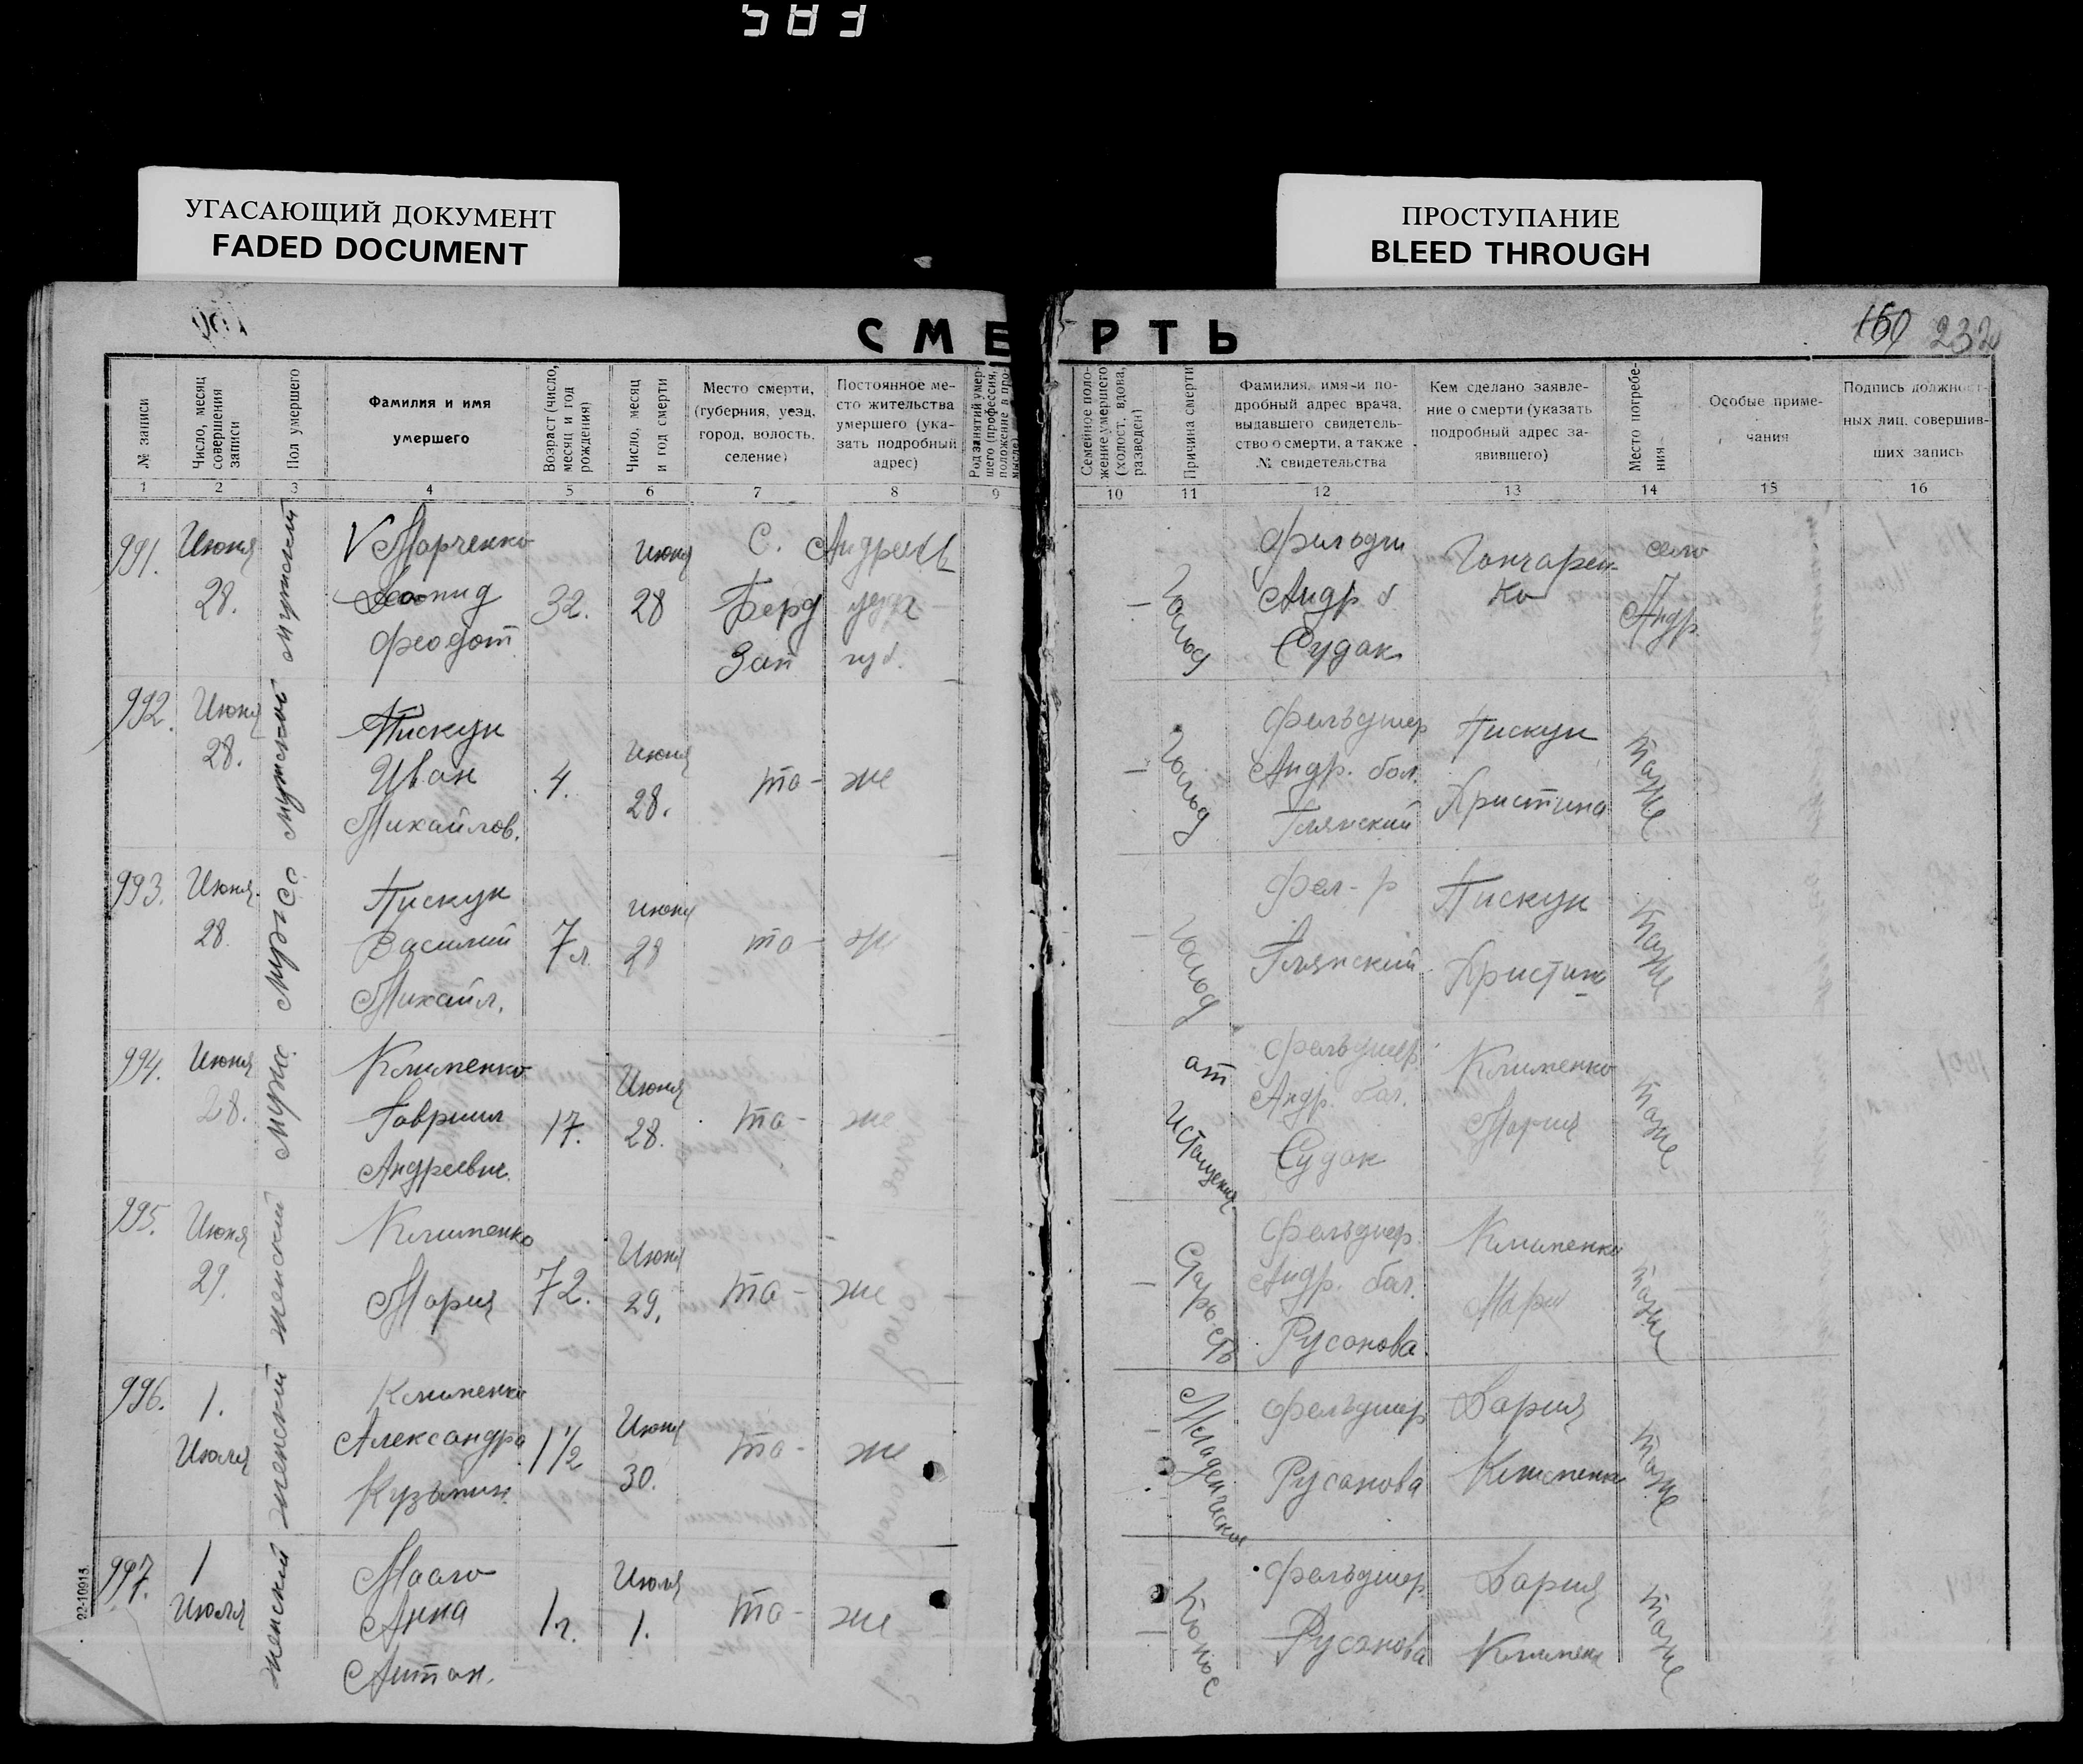 583
УГАСАЮЩИЙ ДОКУМЕНТ
FADED DOCUMENT
ПРОСТУПАНИЕ
BLEED THROUGH
160 232
СМЕРТЬ
№ записи
Число, месяц совершения записи
Пол умершего
Фамилия и имя
умершего
Возраст (число, месяц и год рождения)
Число, месяц и год смерти
Место смерти,
(губерния, уезд,
город, волость,
селение)
Постоянное ме-
сто жительства
умершего (ука-
зать подробный
адрес)
Род занятий умер-
шего (профессия,
положение в про-
мысле)
Семейное поло-
жение умершего
(холост, вдова,
разведен)
Причина смерти
Фамилия, имя и по-
дробный адрес врача,
выдавшего свидетель-
ство о смерти, а также
№ свидетельства
Кем сделано заявле-
ние о смерти (указать
подробный адрес за-
явившего)
Место погребе-
ния
Особые приме-
чания
Подпись должност-
ных лиц, совершив-
ших запись
1 2 3 4 5 6 7 8 9 10 11 12 13 14 15 16
991.
Июня
28.
Мужской
V Марченко
Леонид
Феодот.
32.
июня
28
С. Андреевк
Берд уезд
Зап губ.
–
Голод
Фильдш
Андр б
Судак
Гончарен-
ко
село
Андр.
992.
Июня
28.
Мужской
Пискун
Иван
Михайлов.
4.
июня
28.
то-же
–
Голод
Фельдшер
Андр. бол.
Глянский
Пискун
Христина
тоже
993.
Июня.
28.
Мужс
Пискун
Василий
Михайл.
7 л.
июня
28
то-же
–
Голод
Фел-р
Глянский
Пискун
Христина
тоже
994.
Июня
28.
Мужс.
Клименко
Гавриил
Андреевич.
17.
Июня
28.
то-же
от
Истощения
Фельдшер.
Андр. бол.
Судак
Клименко
Мария
тоже
995.
Июня
29.
женский
Клименко
Мария
72.
Июня
29.
то-же
–
Старость
Фельдшер.
Андр. бол.
Русанова.
Клименко
Мари
тоже
996.
1.
Июля
женский
Клименко
Александра
Кузьмин.
1 1/2
Июня
30.
то-же
–
Младенческое
Фельдшер
Русанова
Дария
Клименко
тоже
997.
1
Июля
женский
Анна
Антон.
1 г.
Июля
1.
то-же
–
Фельдшер.
Русанова
Дария
Клименк
тоже
22-10915.